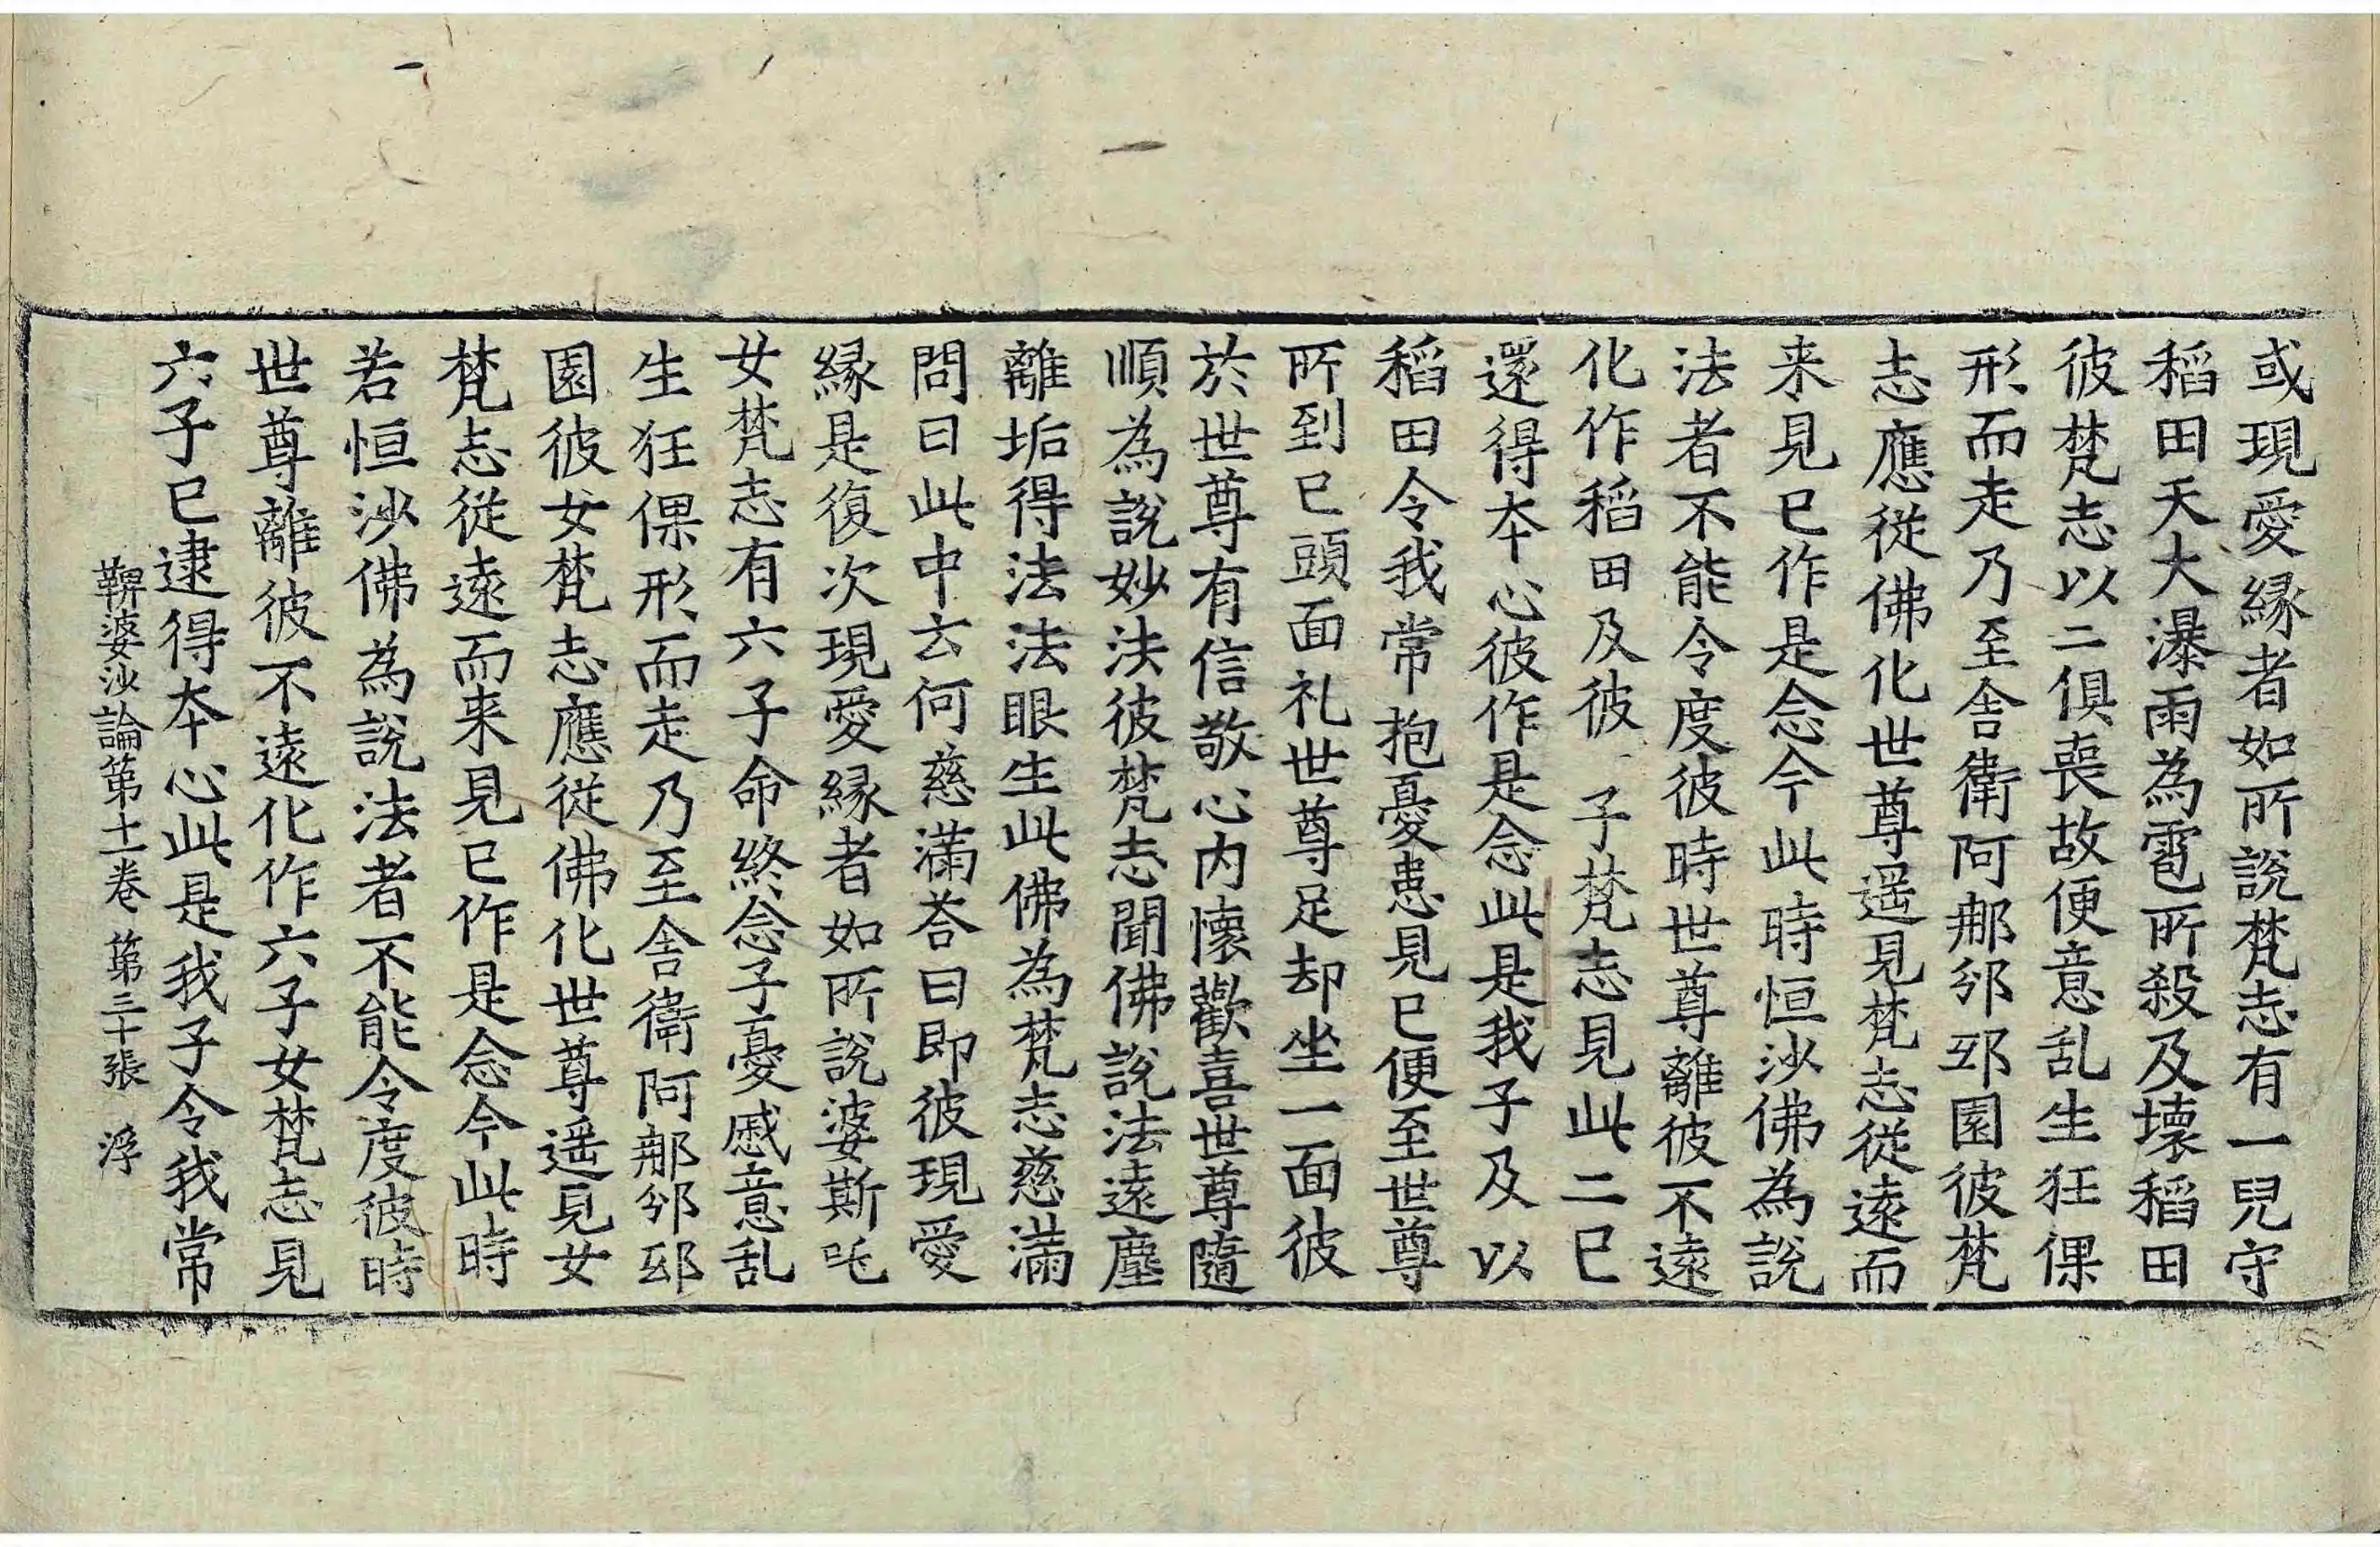 或現愛縁者如所說梵志有一兒守
稻田天大瀑雨為雹所殺及壞稻田
彼梵志以二俱喪故便意乱生狂倮
形而走乃至舍衛阿那邠邸園彼梵
志應從佛化世尊遥見梵志從遠而
来見已作是念今此時恒沙佛為說
法者不能令度彼時世尊離彼不遠
化作稻田及彼子梵志見此二已
還得本心彼作是念此是我子及以
稻田令我常抱憂患見已便至世尊
所到已頭面礼世尊足却坐一面彼
於世尊有信敬心内懷歡喜世尊隨
順為說妙法彼梵志聞佛說法遠塵
離垢得法法眼生此佛為梵志慈滿
問曰此中云何慈滿荅曰即彼現愛
縁是復次現愛縁者如所說婆斯吒
女梵志有六子命終念子憂慼意乱
生狂倮形而走乃至舍衛阿那邠邸
園彼女梵志應從佛化世尊遥見女
梵志從遠而来見已作是念今此時
若恒沙佛為說法者不能令度彼時
世尊離彼不遠化作六子女梵志見
六子已逮得本心此是我子令我常
鞞婆沙論第十一卷 第三十張 浮